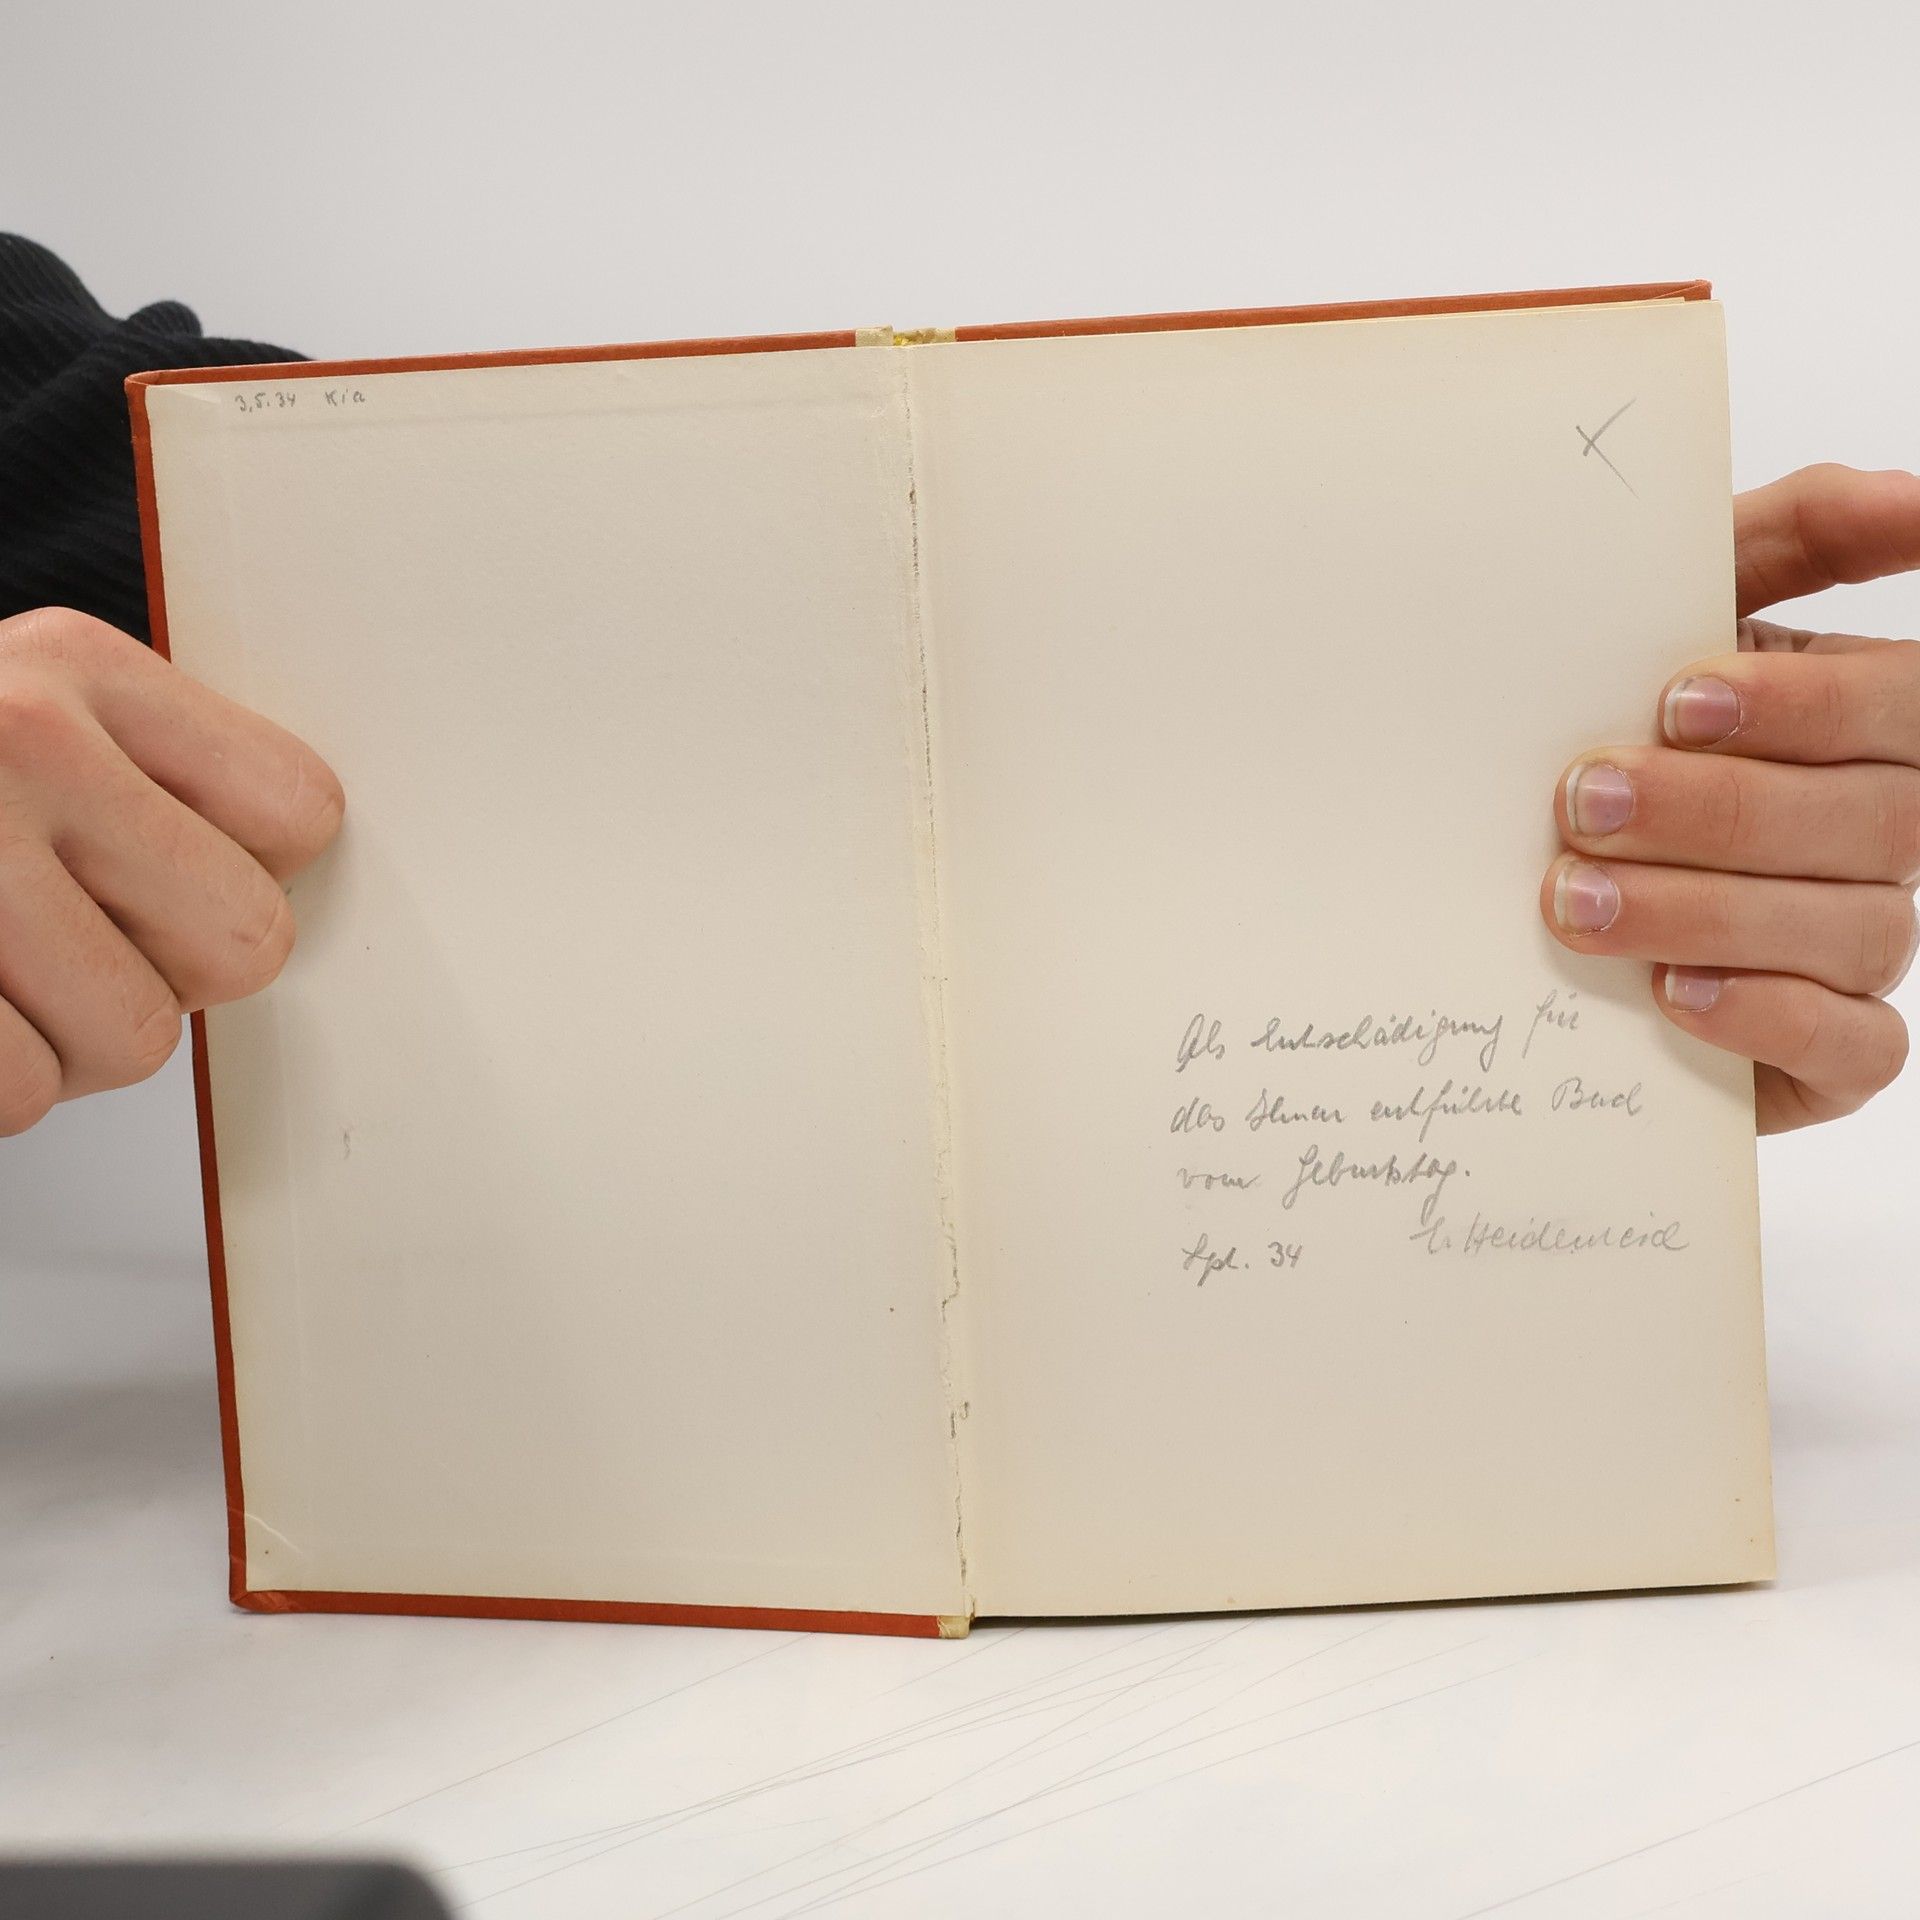 3.5.34 Kia
Als Entschädigung für
das Ihnen entführte Buch
vom Geburtstag.
Spt. 34 E. Heidenreich